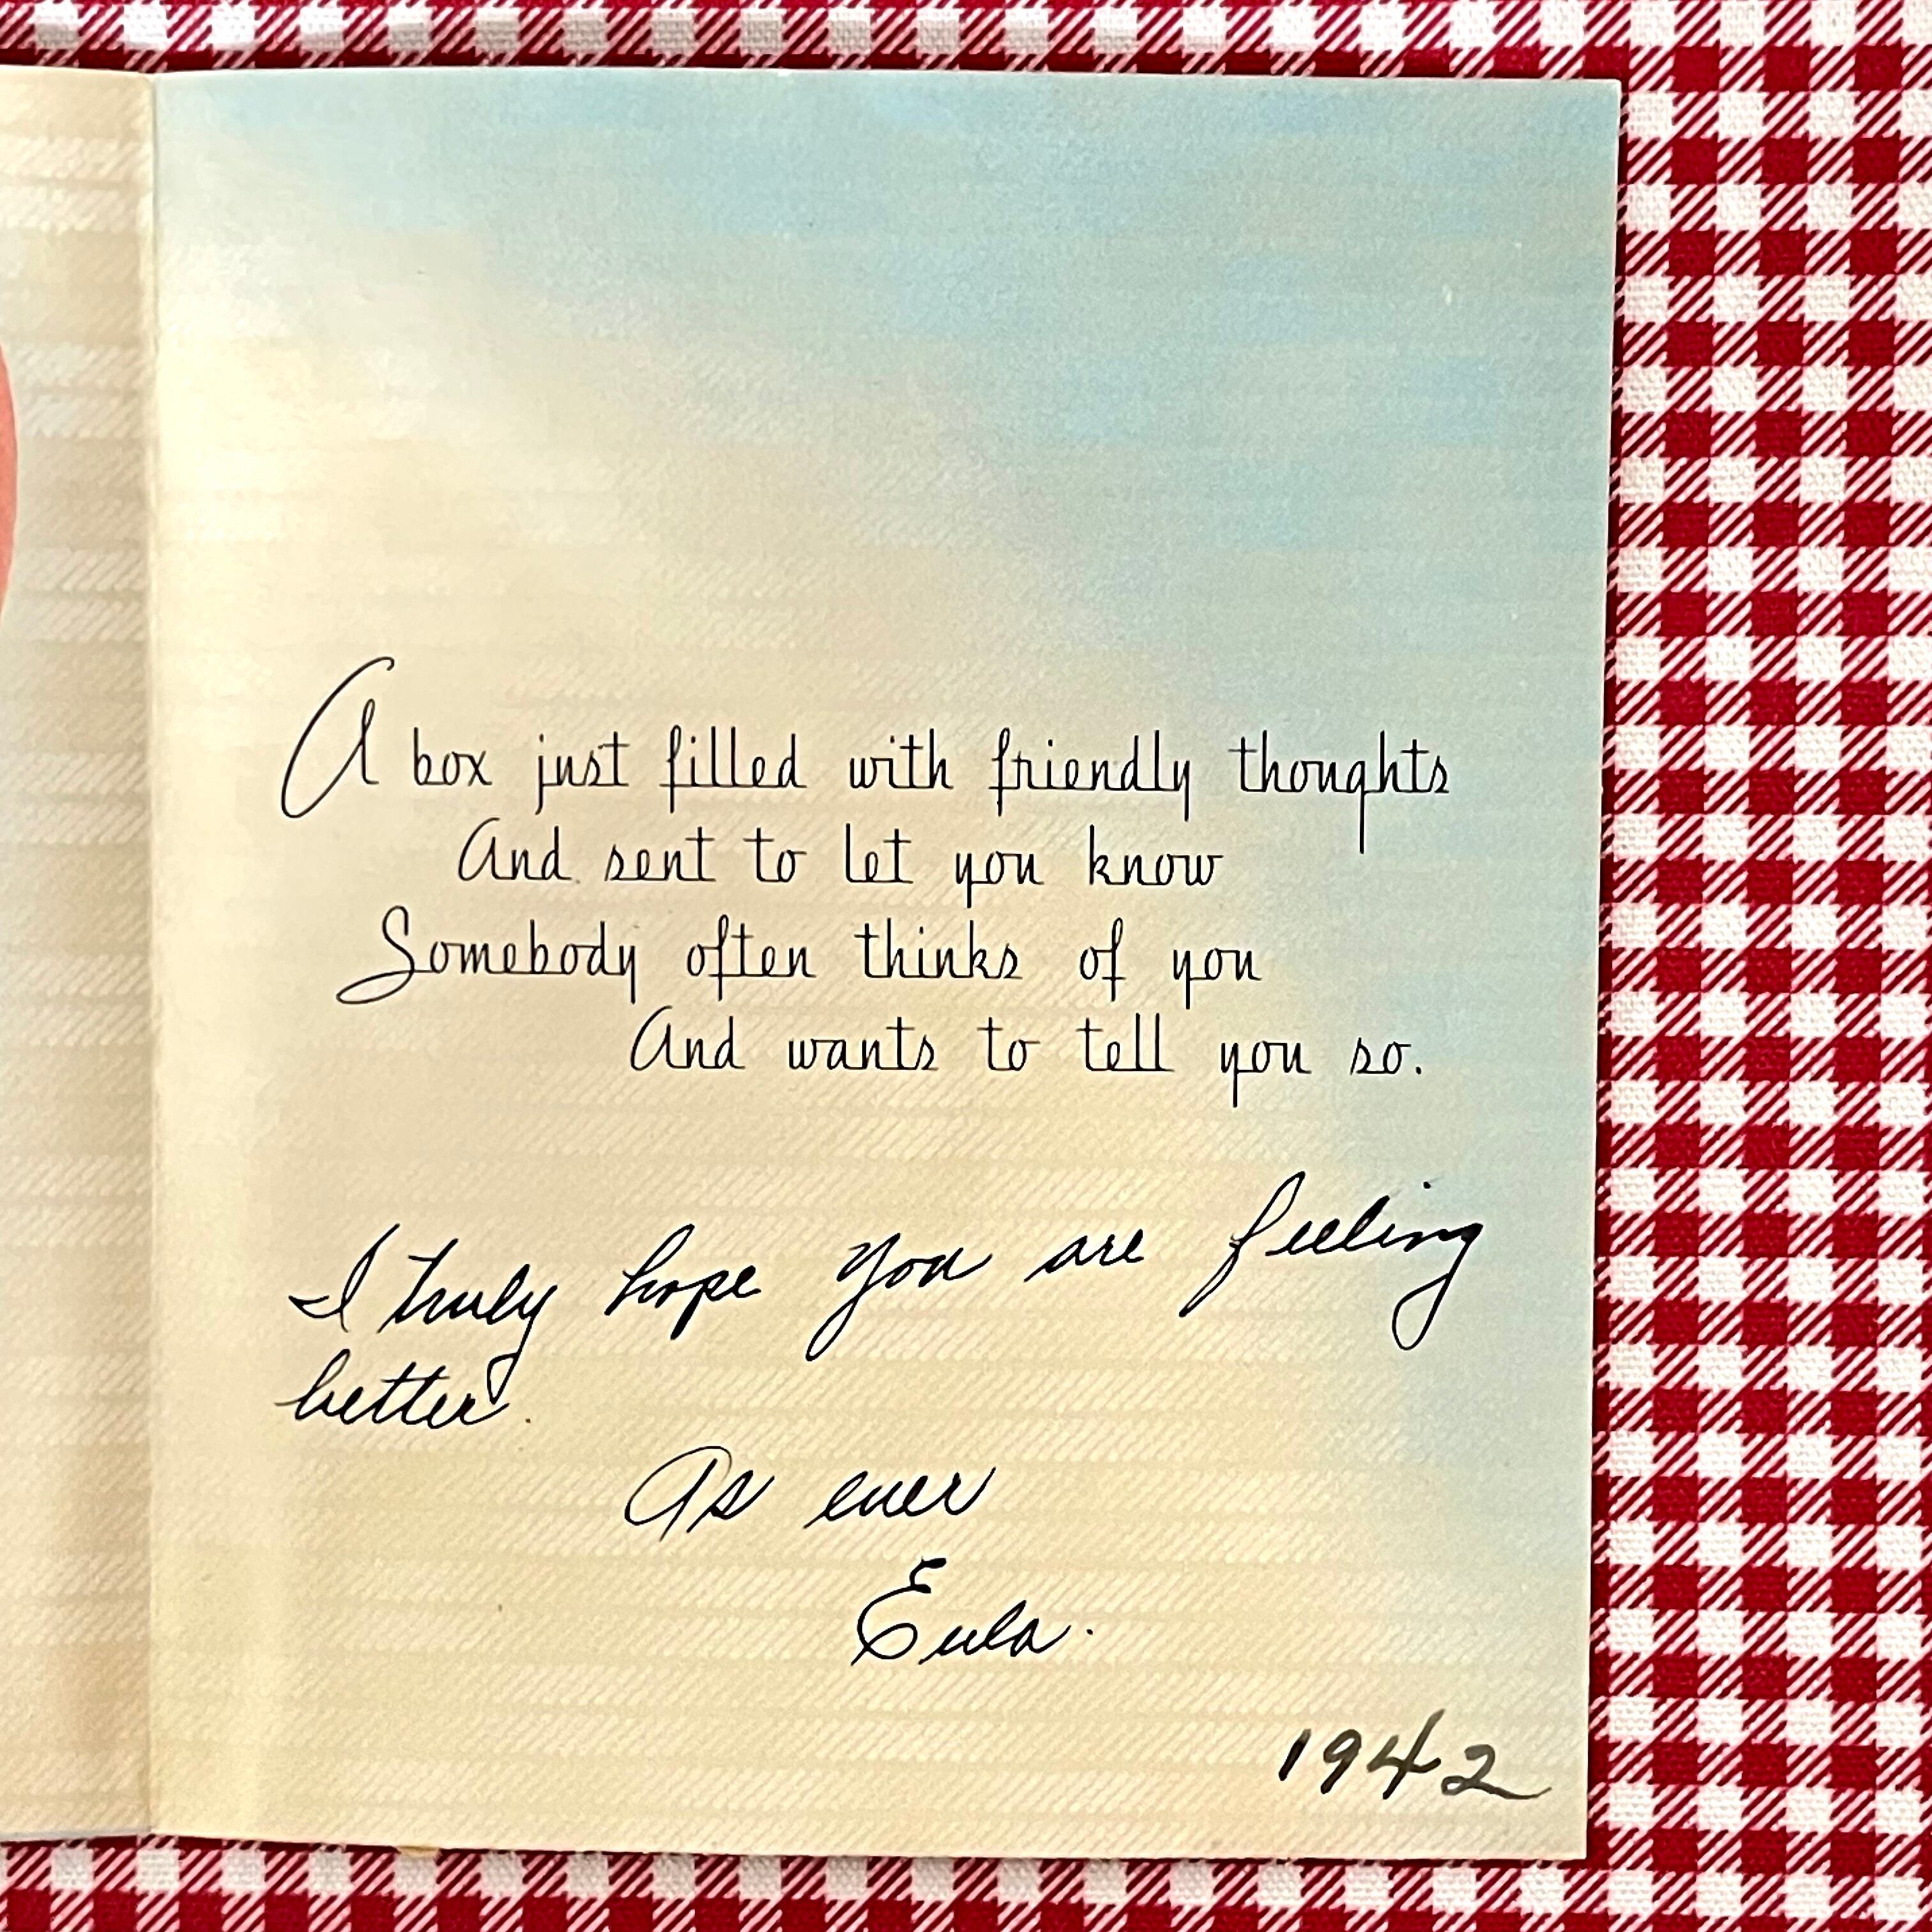 A box just filled with friendly thoughts
And sent to let you know
Somebody often thinks of you
And wants to tell you so.
I truly hope you are feeling
better.
As ever
Eula.
1942